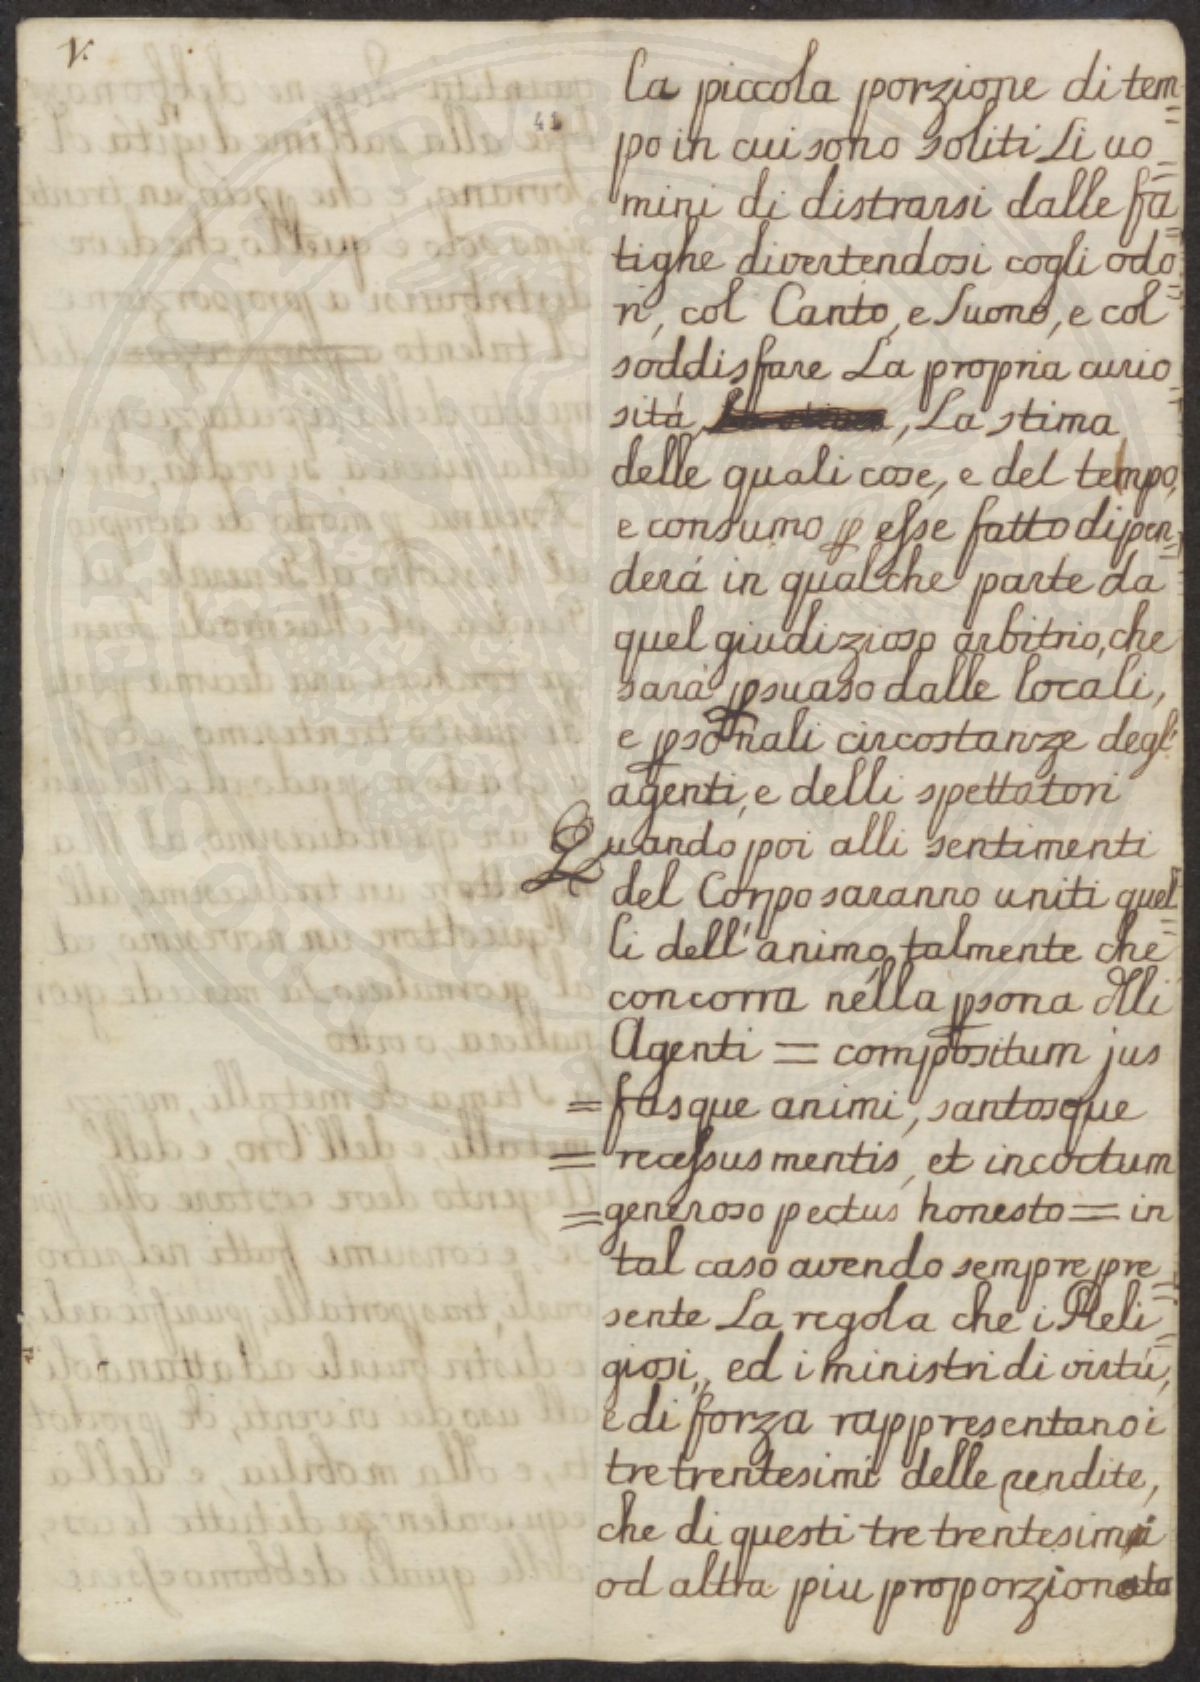 V.
41
la piccola porzione di tem=
po in cui sono soliti Li uo=
mini di distrarsi dalle fa=
tighe divertendosi cogli odo=
ri, col Canto, e Suono, e col
soddisfare La propria curio=
sitá, La stima
delle quali cose, e del tempo,
e consumo p esse fatto dipen=
derá in qualche parte da
quel giudizioso arbitrio, che
sará psuaso dalle locali,
e psonali circostanze degl'
agenti, e delli spettatori
Quando poi alli sentimenti
del Corpo saranno uniti quel=
li dell'animo, talmente che
concorra nella psona dlli
Agenti = compositum jus
= fasque animi, santosque
= recessus mentis, et incoctum
= generoso pectus honesto = in
tal caso avendo sempre pre=
sente La regola che i Reli=
giosi, ed i ministri di virtú,
e di forza rappresentano i
tre trentesimi delle rendite,
che di questi tre trentesimi
od altra piu proporzionata